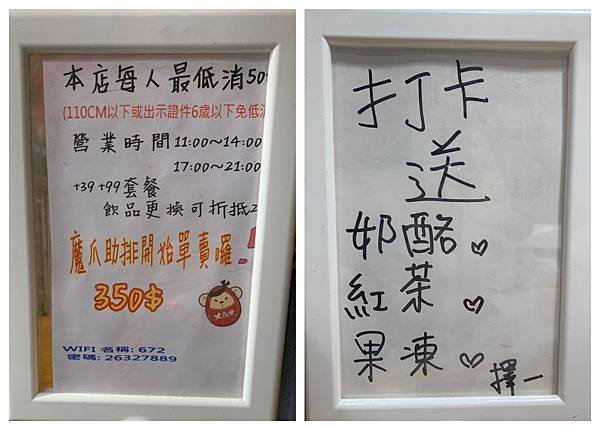 本店每人最低消50
(110CM以下或出示證件6歲以下免低消
營業時間11:00～14:00
17:00～21:00
+39 +99套餐
飲品更換可折抵2
魔爪助排開始單賣囉
350$
WIFI 名稱: 672
密碼: 26327889
打卡
送
奶酪♡
紅茶♡
果凍♡
擇一